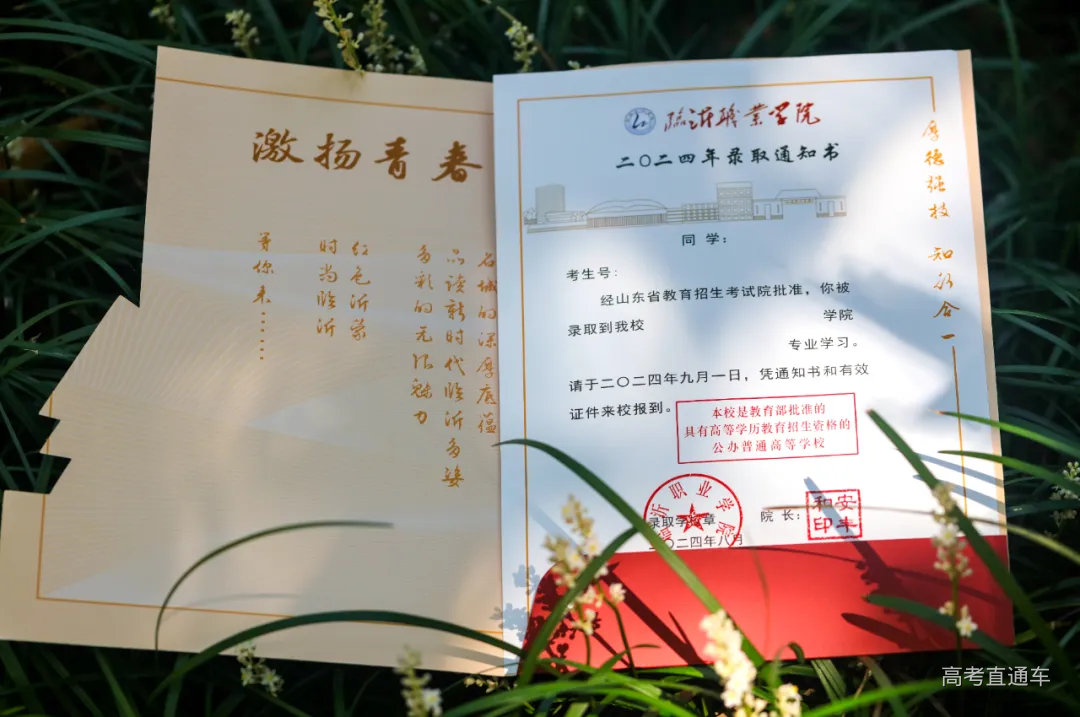 激扬青春
名城的深厚底蕴
品读新时代临沂多姿
多彩的无限魅力
红色沂蒙
时尚临沂
等你来……
临沂職業学院
二〇二四年录取通知书
厚德强技 知行合一
同 学：
考生号：
经山东省教育招生考试院批准，你被
录取到我校 学院
专业学习。
请于二〇二四年九月一日，凭通知书和有效
证件来校报到。
本校是教育部批准的
具有高等学历教育招生资格的
公办普通高等学校
临沂职业学院
录取学校章
二〇二四年八月
院 长：
安丰和印
高考直通车